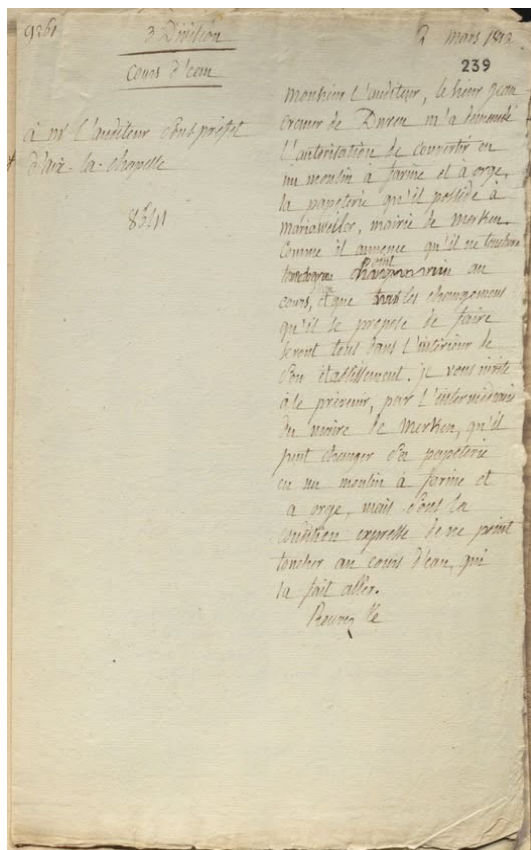 9261
3e Division
2 mars 1812.
239
Cours d'eau
à mr l'auditeur sous préfet
d'aix-la-chapelle
8541
Monsieur l'auditeur, le sieur jean
de Duren m'a demandé
l'autorisation de convertir en
un moulin à farine et à orge,
la papeterie qu'il possède à
Mariaweiler, mairie de Merken.
Comme il annonce qu'il ne touchera
point au
cours, et que les changemens
qu'il se propose de faire
seront tous dans l'intérieur de
son établissement. je vous invite
à le prévenir, par l'intermédiaire
du maire de Merken, qu'il
peut changer sa papeterie
en un moulin à farine et
a orge, mais sous la
condition expresse de ne point
toucher au cours d'eau, qui
la fait aller.
Recevez &c